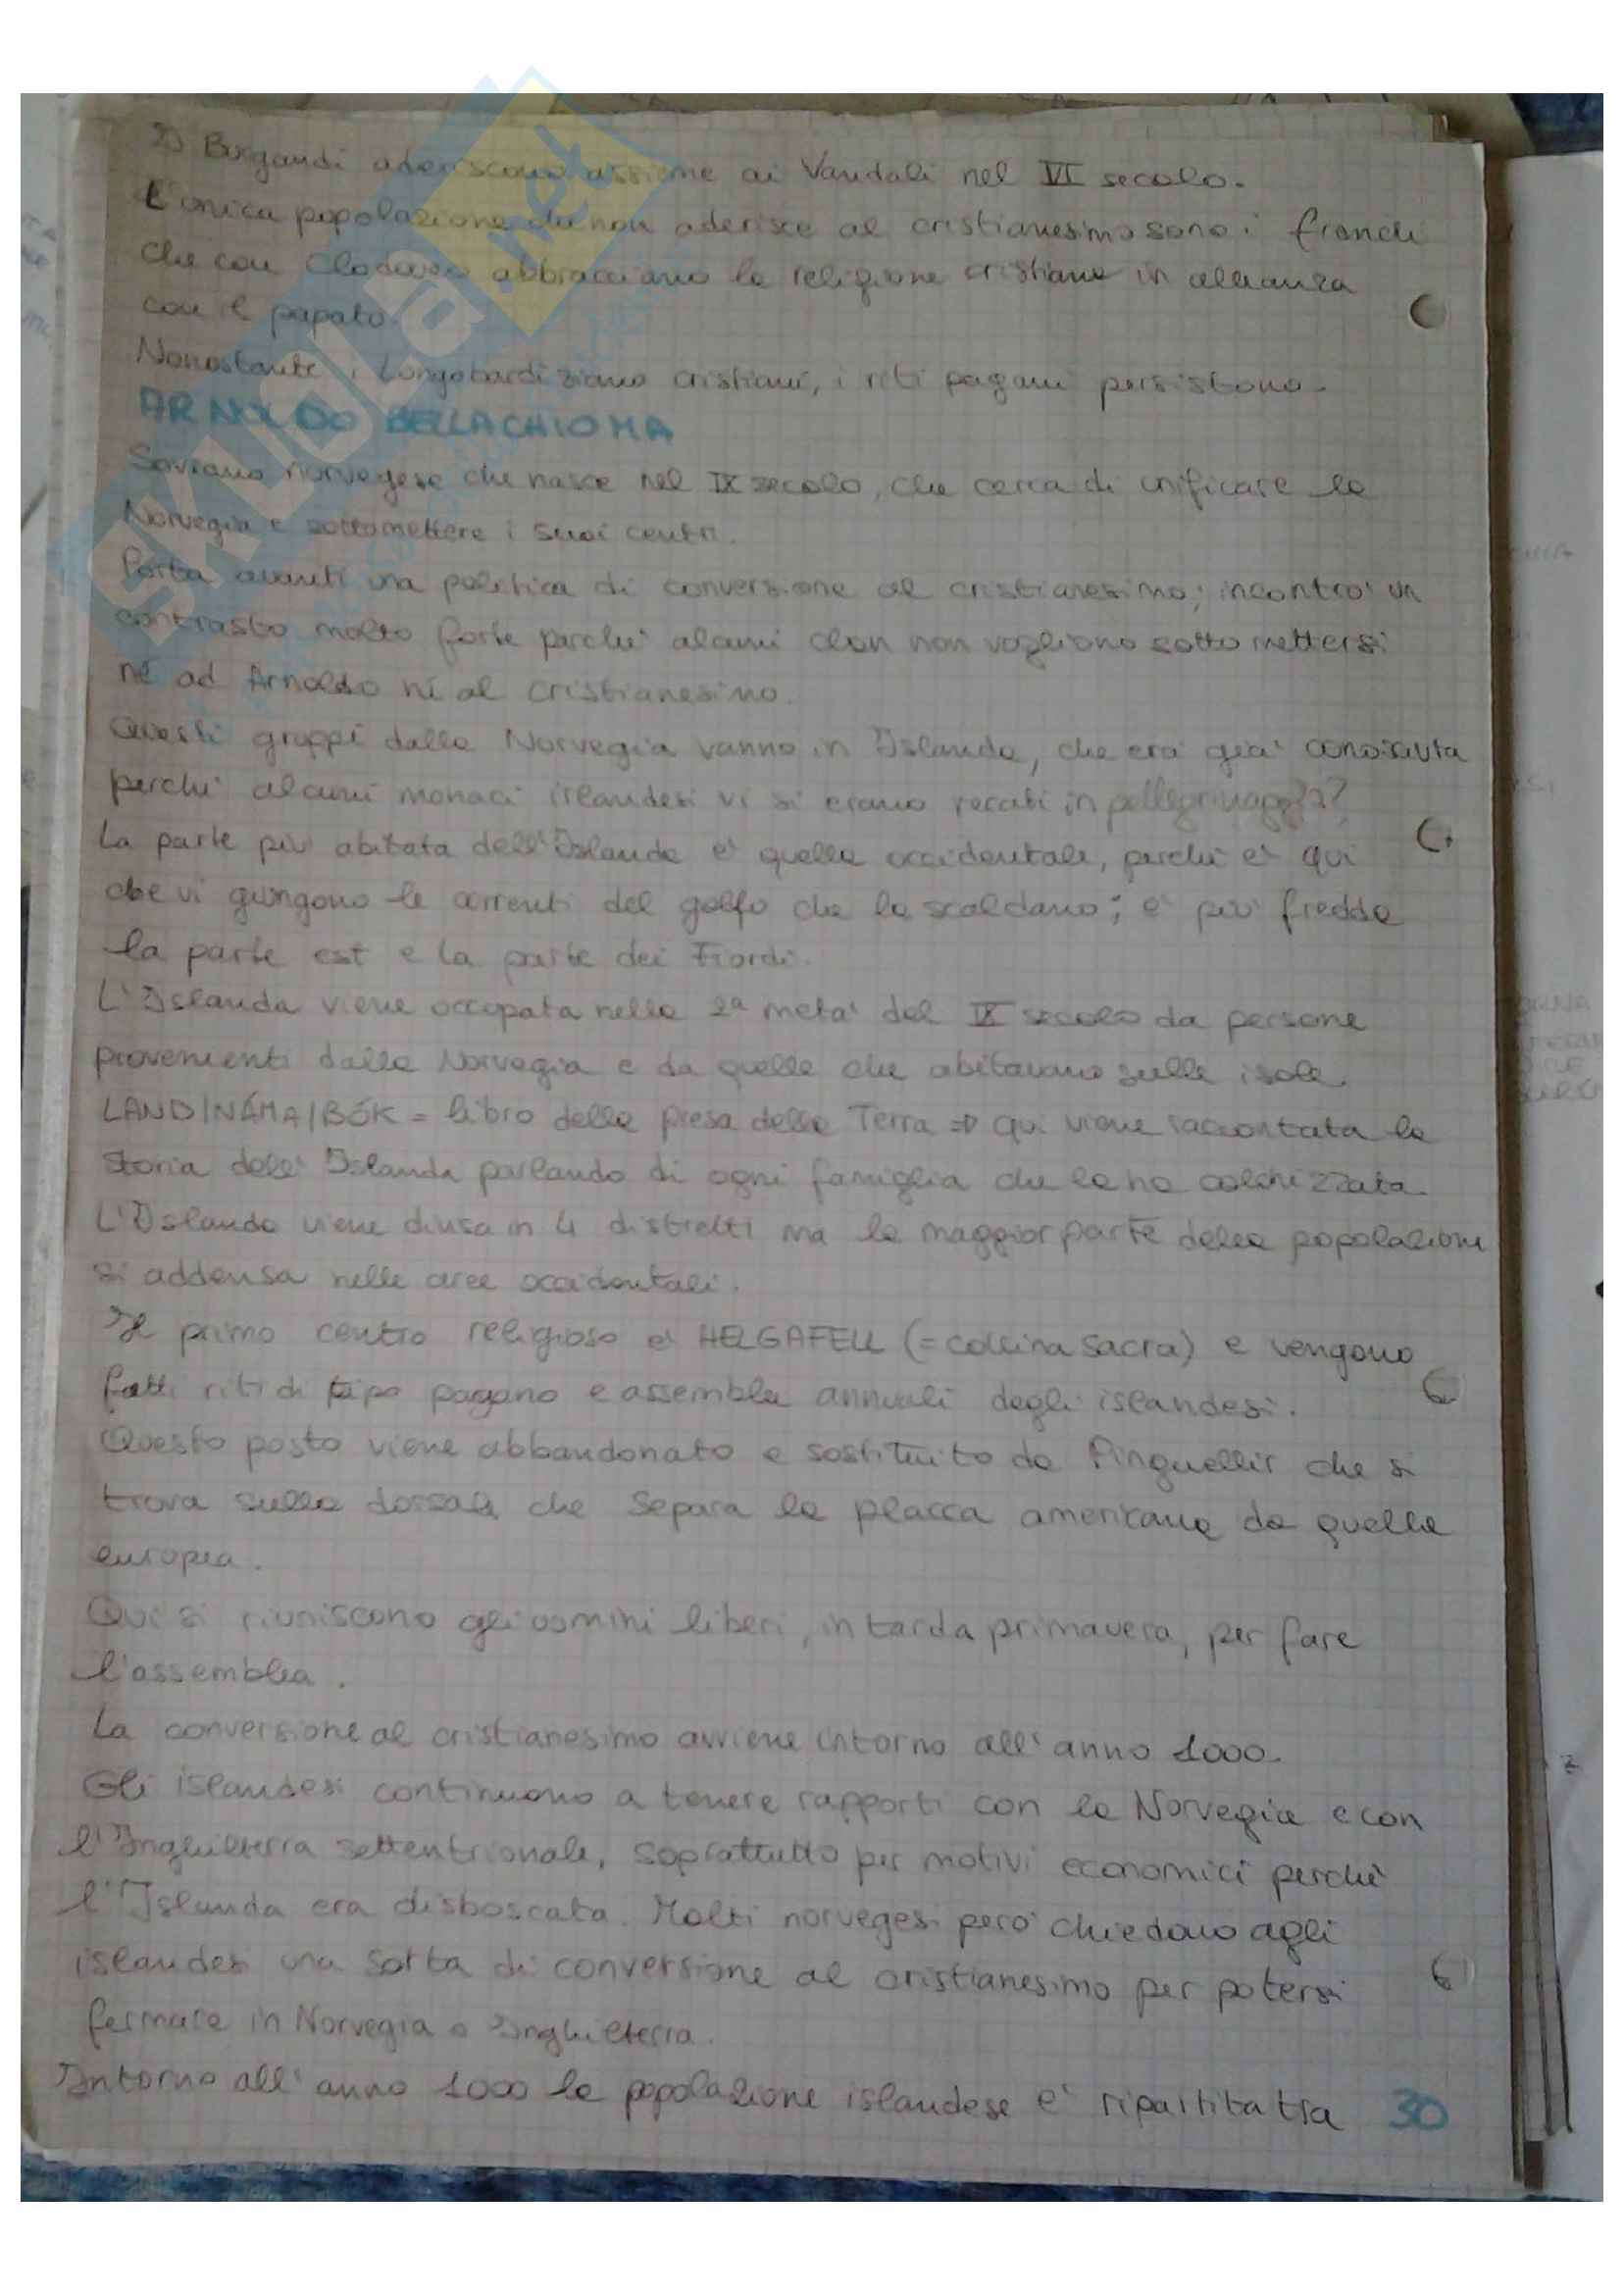 I Burgundi aderiscono assieme ai Vandali nel VI secolo.
L'unica popolazione che non aderisce al cristianesimo sono i franchi
che con Clodoveo abbracciano la religione cristiana in alleanza
con il papato.
Nonostante i Longobardi siano cristiani, i riti pagani persistono.
ARNOLDO BELLACHIOMA
Sovrano norvegese che nasce nel IX secolo, che cerca di unificare la
Norvegia e sottomettere i suoi centri.
Porta avanti una politica di conversione al cristianesimo; incontrò un
contrasto molto forte perchè alcuni clan non vogliono sottomettersi
nè ad Arnoldo nè al cristianesimo.
Questi gruppi dalla Norvegia vanno in Islanda, che era già conosciuta
perchè alcuni monaci irlandesi vi si erano recati in pellegrinaggio?
La parte più abitata dell'Islanda è quella occidentale, perchè è qui
che vi giungono le correnti del golfo che la scaldano; è più fredda
la parte est e la parte dei Fiordi.
L'Islanda viene occupata nella 2ª metà del IX secolo da persone
provenienti dalla Norvegia e da quelle che abitavano sulle isole.
LAND/NÁMA/BÓK = libro della presa della Terra => qui viene raccontata la
storia dell'Islanda parlando di ogni famiglia che la ha colonizzata.
L'Islanda viene divisa in 4 distretti ma la maggior parte della popolazione
si addensa nelle aree occidentali.
Il primo centro religioso è HELGAFELL (= collina sacra) e vengono
fatti riti di tipo pagano e assemblee annuali degli islandesi.
Questo posto viene abbandonato e sostituito da Pinguellir che si
trova sulla dorsale che separa la placca americana da quella
europea.
Qui si riuniscono gli uomini liberi, in tarda primavera, per fare
l'assemblea.
La conversione al cristianesimo avviene intorno all'anno 1000.
Gli islandesi continuano a tenere rapporti con la Norvegia e con
l'Inghilterra settentrionale, soprattutto per motivi economici perchè
l'Islanda era disboscata. Molti norvegesi però chiedono agli
islandesi una sorta di conversione al cristianesimo per potersi
fermare in Norvegia o Inghilterra.
Intorno all'anno 1000 la popolazione islandese è ripartita tra 30
SKUOLA.net